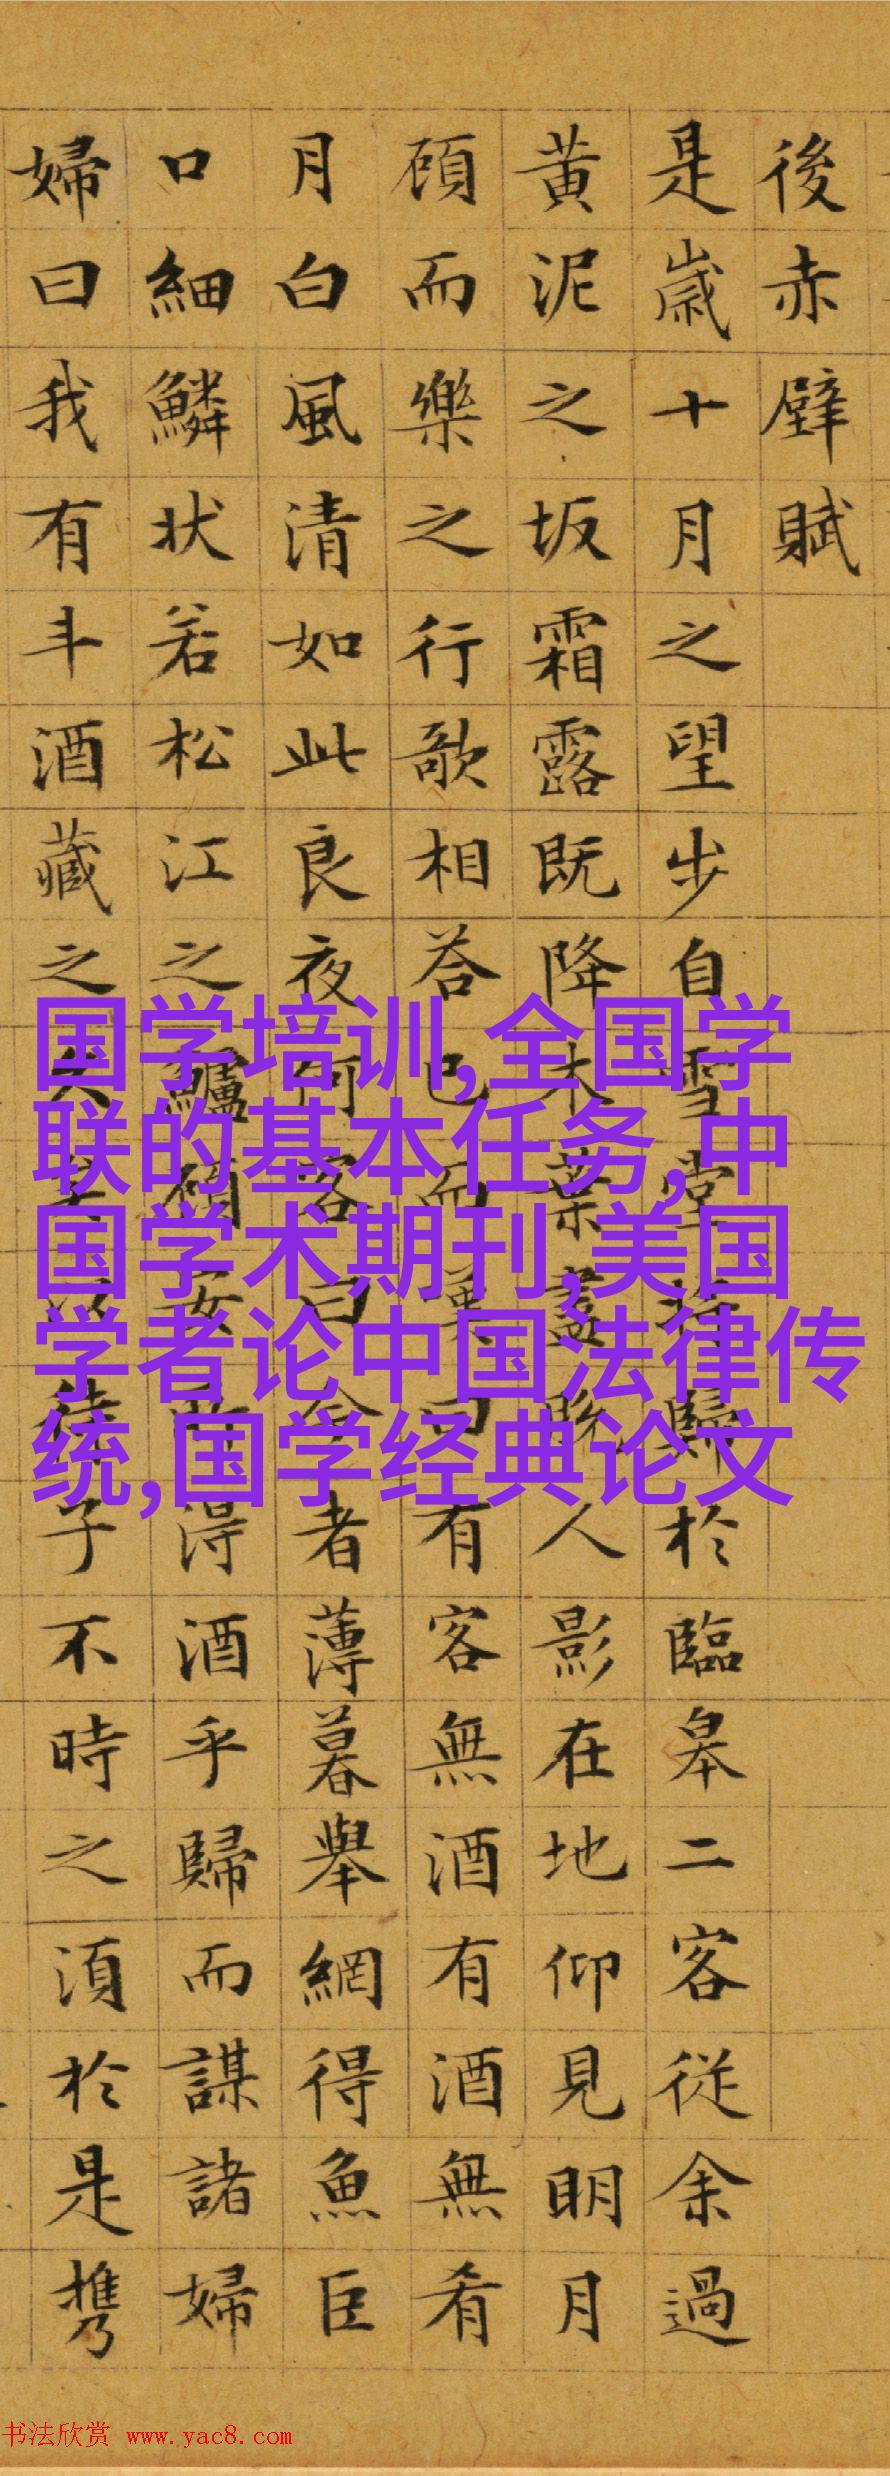 後赤壁賦
是歲十月之望步自雪堂歸於臨皋二客從余過
黃泥之坂霜露既降木葉盡脫人影在地仰見明月
頋而樂之行歌相荅已而曰有客無酒有酒無肴
月白風清如此良夜何客曰今者薄暮舉網得魚臣
口細鱗状若松江之鱸頋安得酒乎歸而謀諸婦
婦曰我有斗酒藏之久待子不時之須於是携
国学培训,全国学
联的基本任务,中
国学术期刊,美国
学者论中国法律传
统,国学经典论文
书法欣赏 www.yac8.com